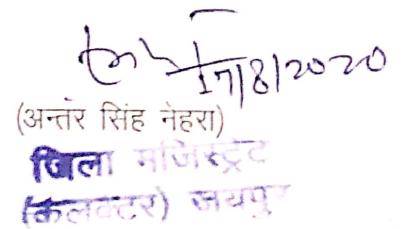 17/8/2020
(अन्तर सिंह नेहरा)
जिला मजिस्ट्रेट
(कलक्टर) जयपुर